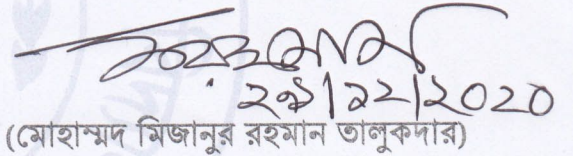 ২৯|১২|২০২০
(মোহাম্মদ মিজানুর রহমান তালুকদার)